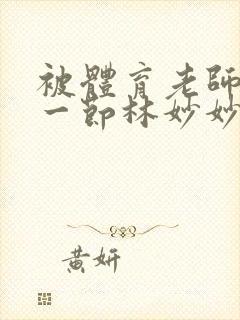 被體育老師
一節林妙妙
黃妍